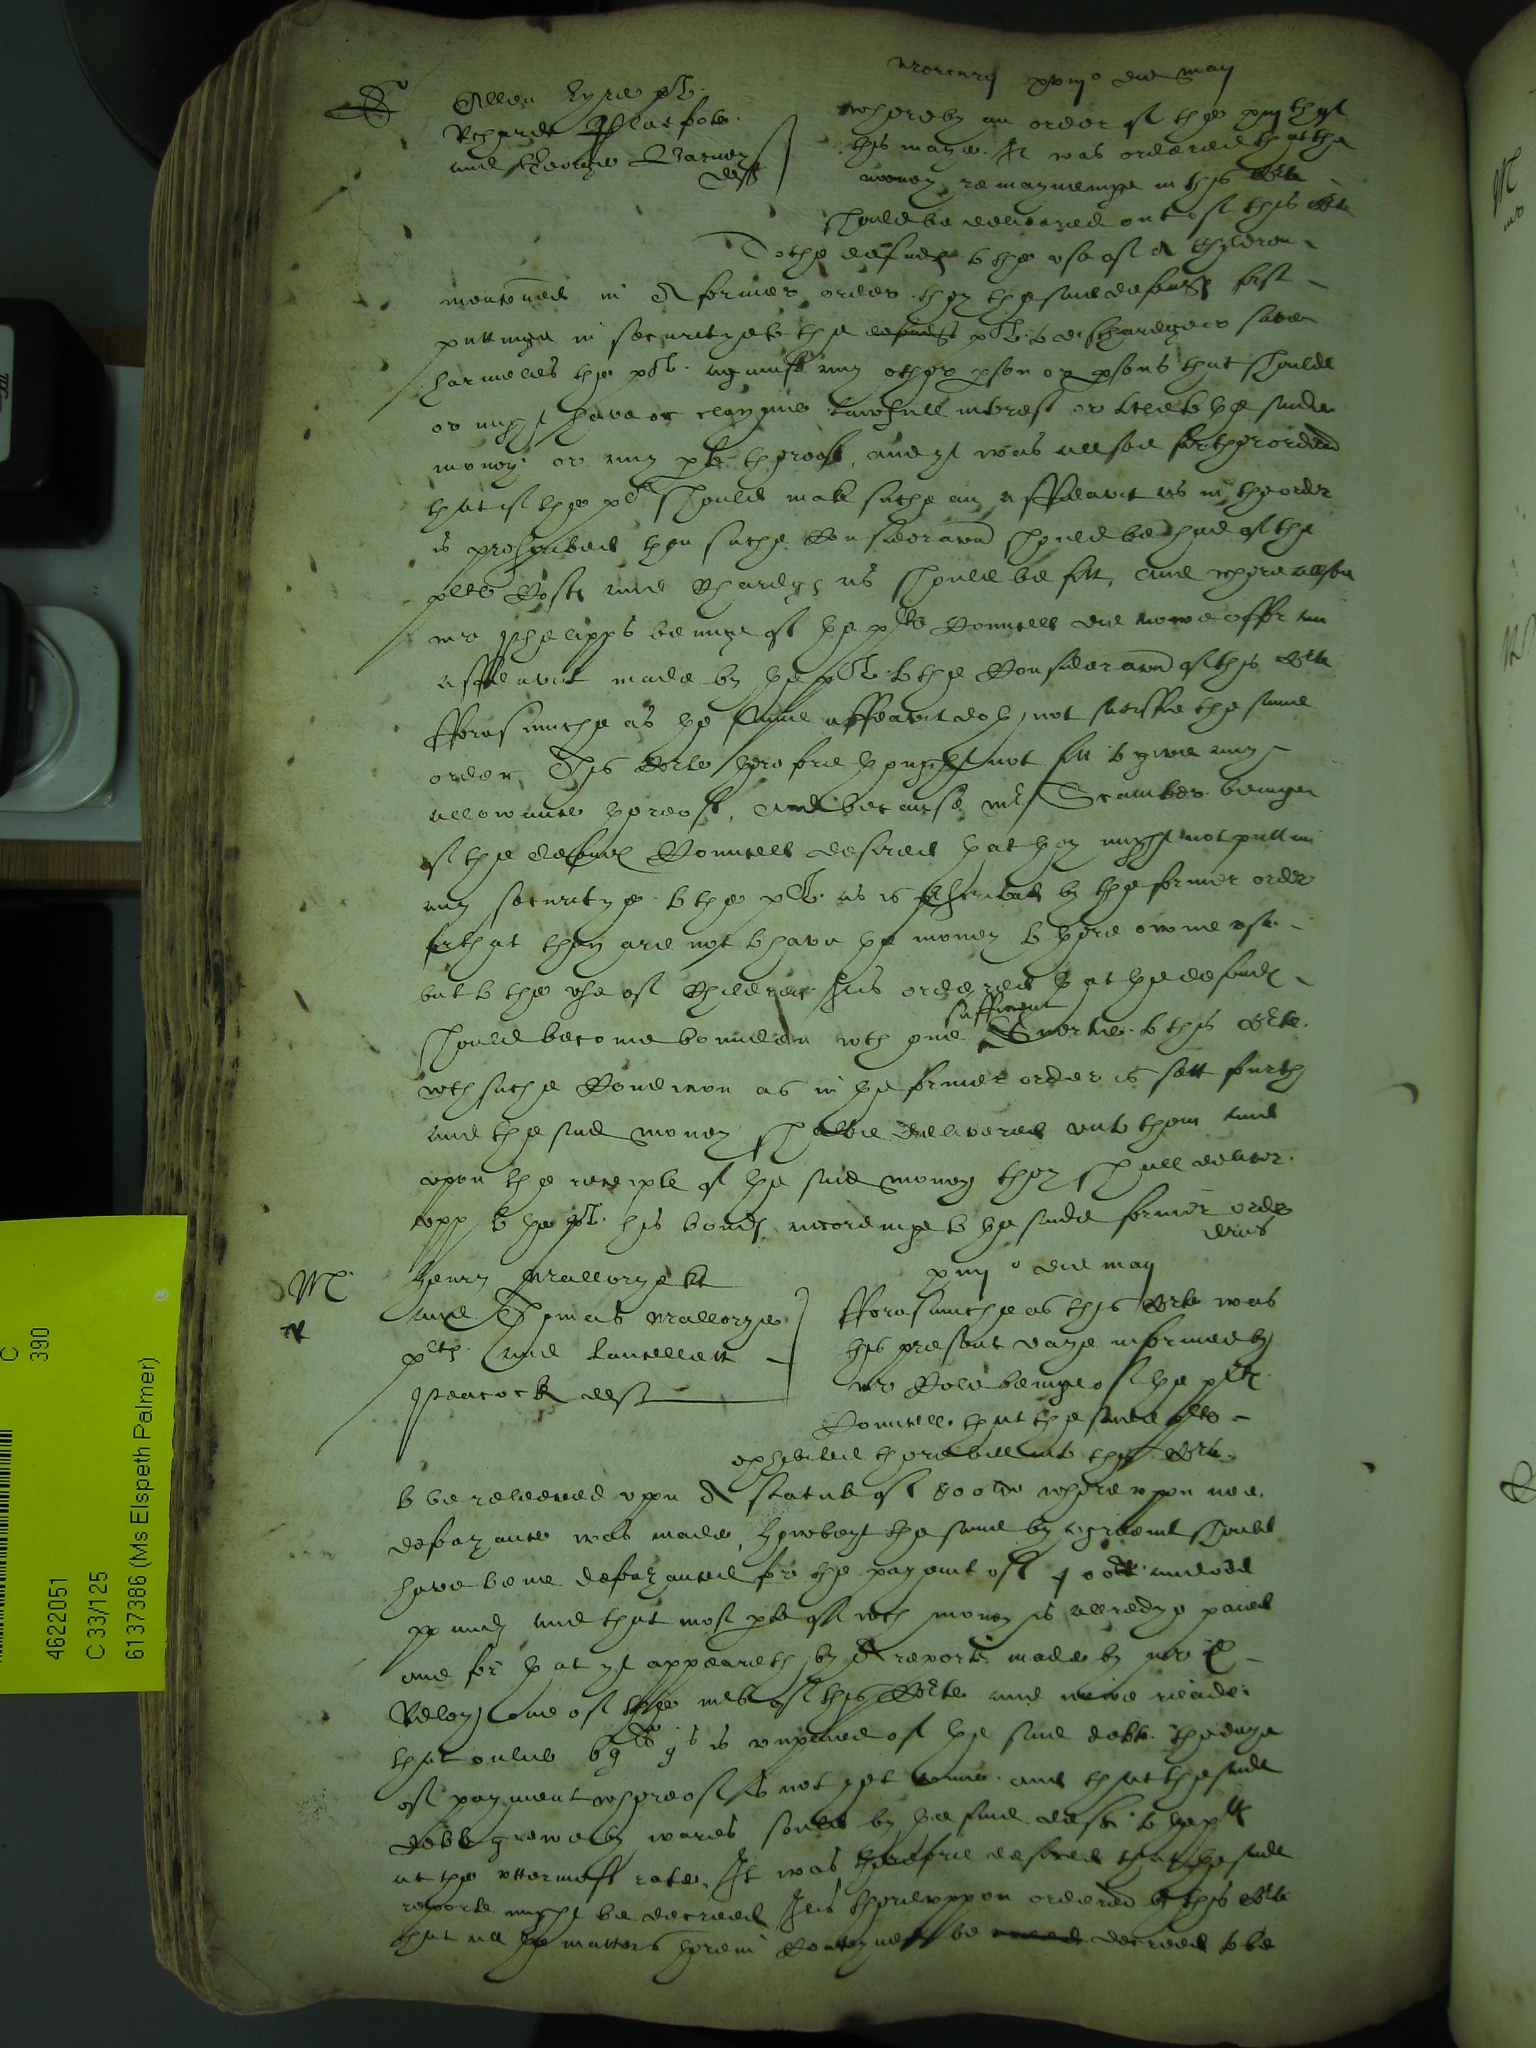 Mercurij xviijo die maij
Allen Eyre plt
Richarde
and George Barney
deftes
whereby an order of the xiijth of
this maye It was ordered that the
money remayneinge in this Corte
shoulde be delivered out of this Corte
To the defendtes to the use of children
mentioned in A former order they the said defendtes first
puttinge in securitye to the plt to dischardge or save
harmeles the plt against any other person or persons that shoulde
or might have or clayme lawfull interest or title to the saide
money or any parte thereof, and yt was allsoe further ordered
that if the plt should make suche an affidavit as in the order
is prescribed then suche Consideracion should be had of the
pltes Costes and Chardges as should be fitt, And where allsoe
mr Phelipps beinge of the pltes Councell did nowe offer an
affidavit made by the plt to the Consideracion of this Corte
fforasmuche as the same affidavit doth not satisfie the same
order This Corte therefore thought not fitt to give any
allowance thereof, And because mr Scamber beinge
of the defendtes Councell desired that they might not putt in
any securitye to the plt as is prescribed by the former order
for that they are not to have the money to there owne use
but to the use of Children It is ordered that the defendtes
should become bounden with one sufficient Suertie to this Corte
with suche Condicion as in the former order is sett fourth
and the said money shalbe delivered unto them and
upon the receipte of the said money they shall deliver
upp to the plt his bondes accordinge to the saide former order
C
390
4622051
C 33/125
6137386 (Ms Elspeth Palmer)
xviijo die maij
Henry Mallorye
and Thomas Mallorye
pltes and Lancellett
Peacock deft
fforasmuche as this Corte was
this present daye informed by
mr Cole beinge of the pltes
Councell that the saide pltes
exhibited there bill into this Corte
to be releeved upon A statute of 800li whereupon noe
defeazance was made, howbeyt the same by agreemt should
have bene defeazanced for the payemt of 400li and odd
poundes and that most parte of which money is allredye paied
and for that yt appeareth by A reporte made by mr D
one of the mrs of this Corte and nowe reade
that onlie is unpaied of the said debte the daye
of payment whereof is not yet come and that the saide
debte grewe by wares soulde by the said deft to the pltes
at the uttermost rate, It was therefore desired that the saide
reporte might be decreed It is thereuppon ordered by this Corte
that all the matters therein Conteyned be decreed to be